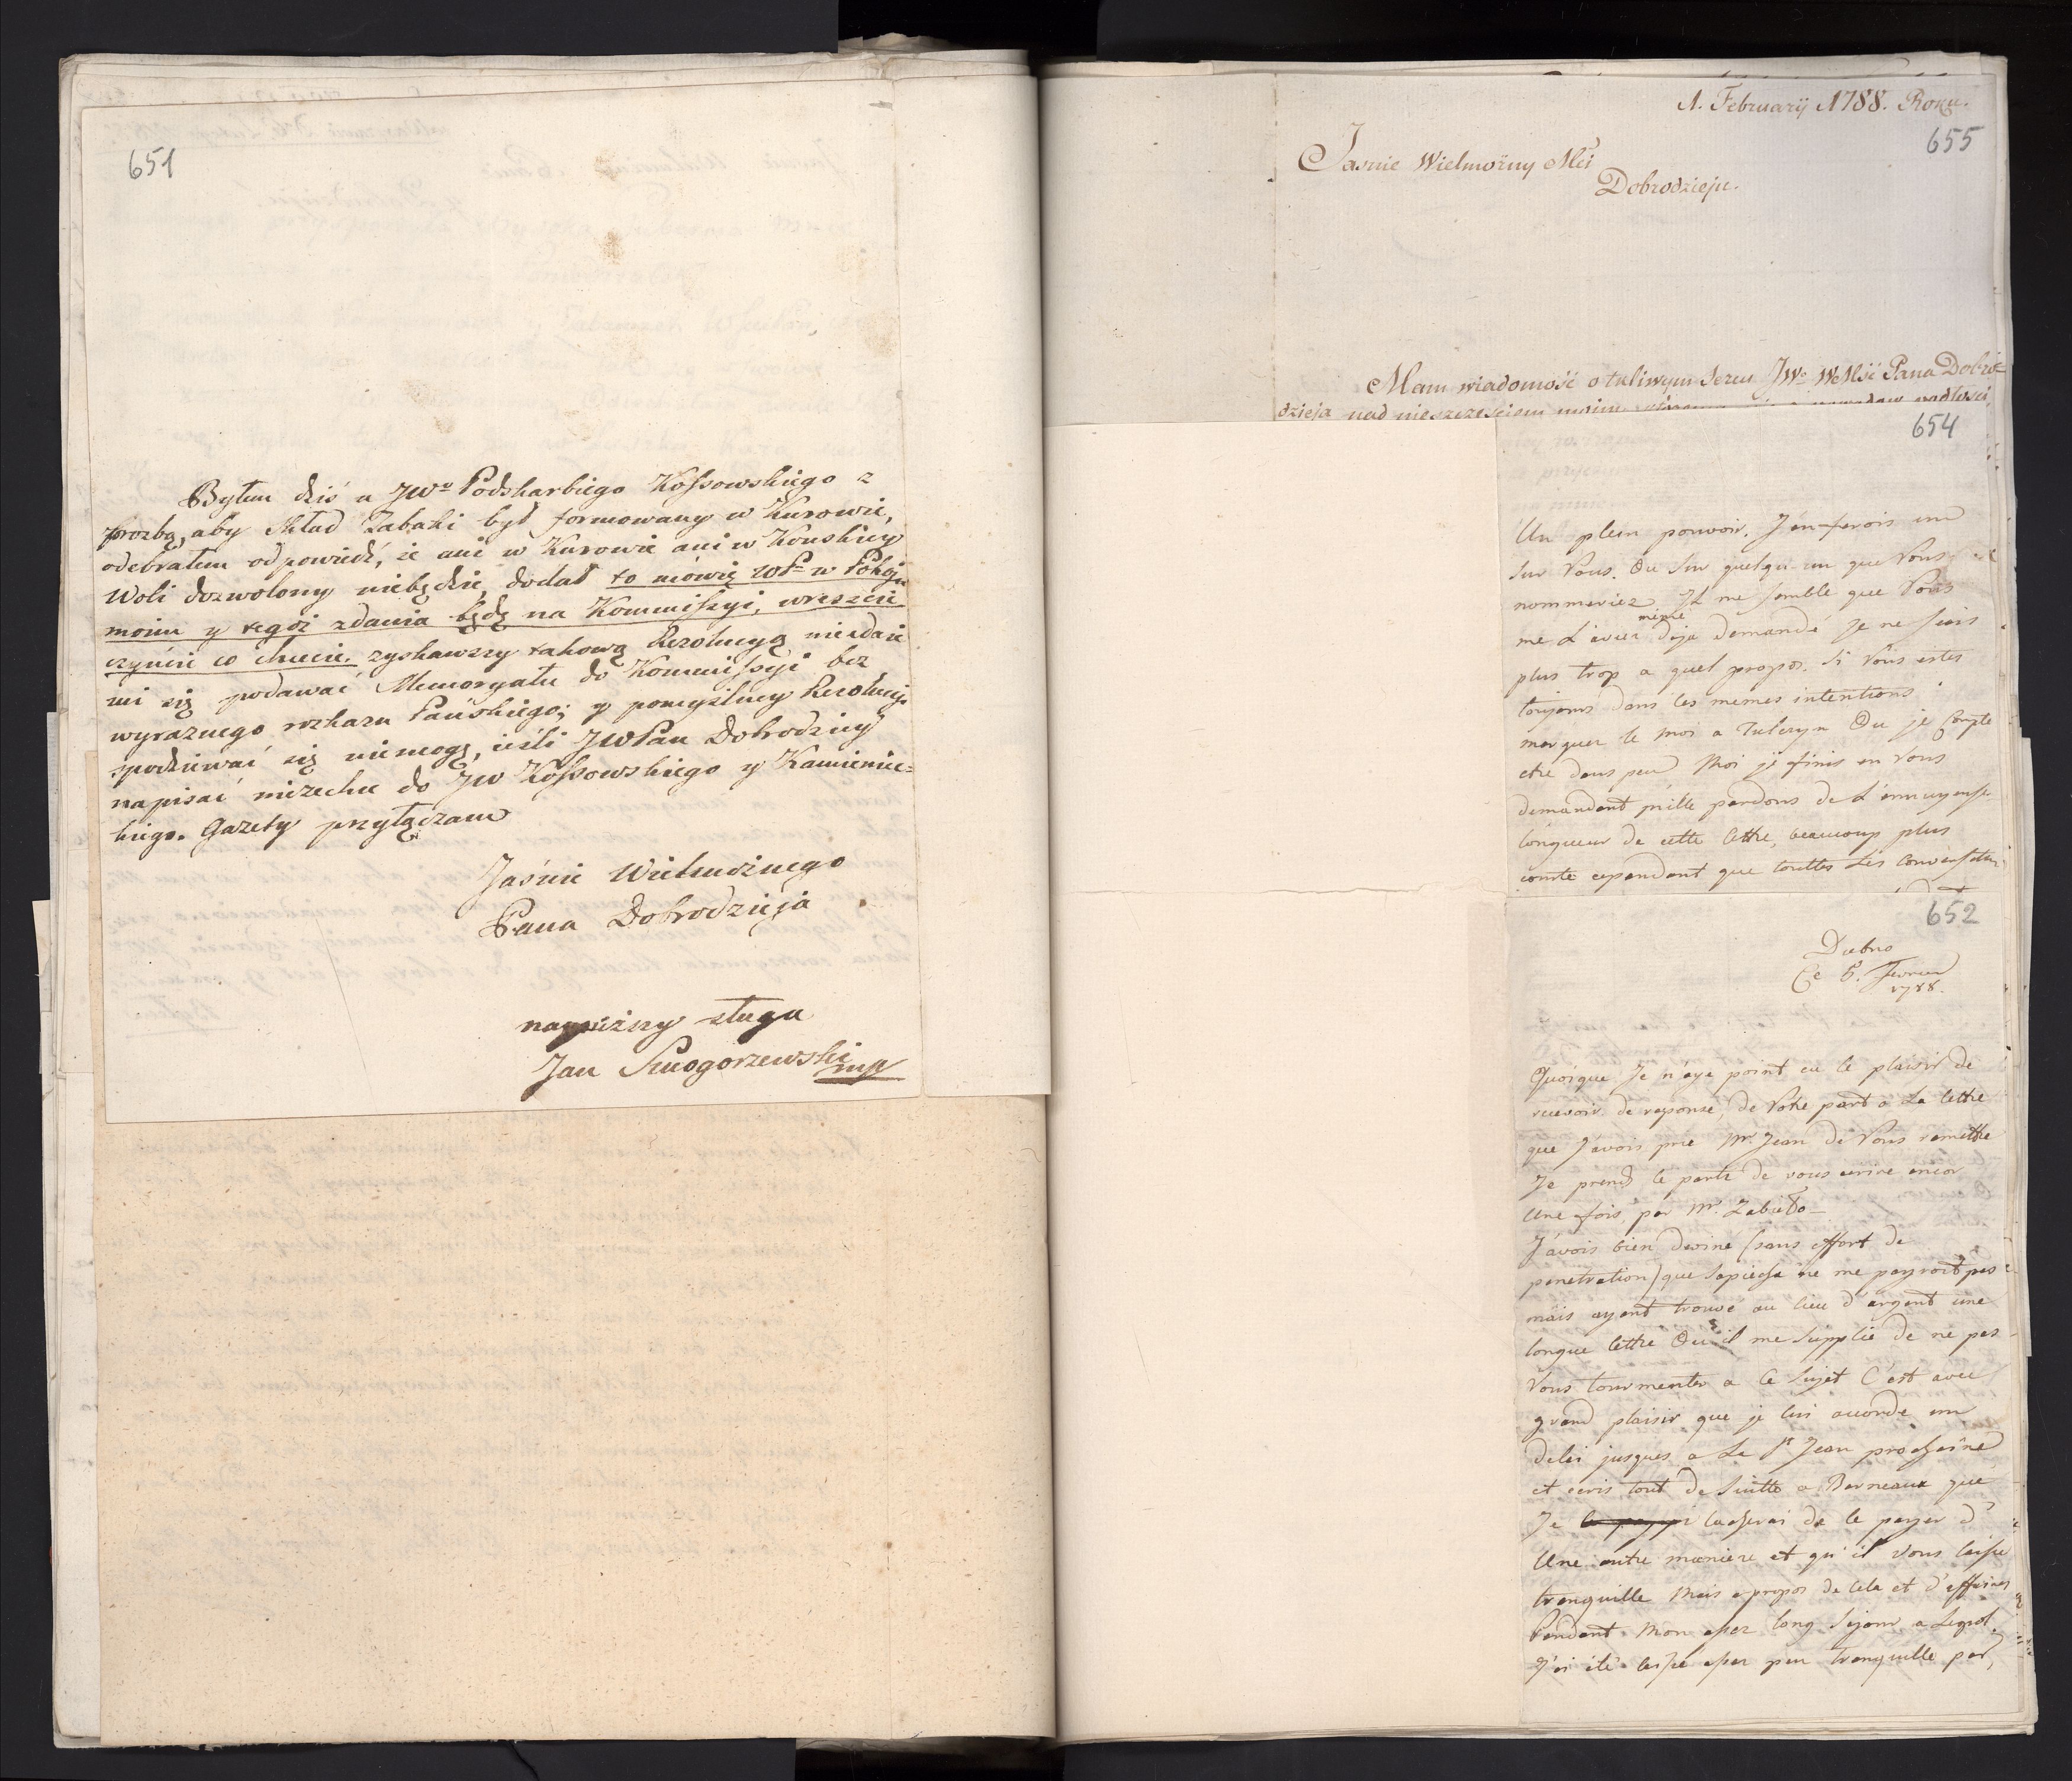 651
Byłem dziś u JWo Podskarbiego Kossowskiego z
prozbą, aby skład Tabaki był formowany w Kurowie,
odebrałem odpowiedź, że ani w Kurowie ani w Konskiey
Woli dozwolony niebędzie, dodał to mówię WP w Pokoju
moim y tegoż zdania będę na Kommissyi, wreszcie
czyńcie co chcecie. zyskawszy takową Rezolucyą niezdaie
mi się podawać Memoryału do Kommissyi bez
wyraznego rozkazu Pańskiego; y pomyślney Rezolucyi
spodziewać się niemogę, ieśli JWPan Dobrodziey
napisać niezechce do JW Kossowskiego y Kamienie-
kiego. Gazety przyłączam
Jaśnie Wielmożnego
Pana Dobrodzieja
nayniższy sługa
Jan Smogorzewski mp
1. February 1788. Roku.
655
Jasnie Wielmożny Mći
Dobrodzieju.
Mam wiadomość o tuliwym sercu JWo WMść Pana Dobro=
dzieja nad nieszczęsciem moim
654
Un plein pouvoir. J'en ferois un
sur Vous. Ou sur quelqu-un que Vous
nommeriez Il me semble que Vous
me L'aviez même deja demandé je ne suis
plus trop a quel propos. Si Vous estes
toujours dans les memes intentions
marquer le moi a Tulczyn Ou je Compte
etre dans peu Moi je finis en Vous
demandant mille pardons de L'ennuyeuse
longueur de cette lettre, beaucoup plus
courte cependant que touttes Les Conversation
652
Dubno
Ce 6. Fevrier
1788.
Quoique Je n'aye point eu le plaisir de
recevoir de reponse de Votre part a La lettre
que J'avois prie Mr. Jean de Vous remettre
Je prend le parti de vous ecrire encor
Une fois par Mr. Zabiełło
J'avois bien deviné (sans effort de
penetration) que Sapieha ne me payroit pas
mais ayant trouvé au lieu d'argent une
longue lettre Ou il me supplie de ne pas
Vous tourmenter a Ce Sujet C'est avec
grand plaisir que je lui accorde un
delai jusques a La St Jean prochaine
et ecris tout de Suitte a Barneaux que
Je tacherai de le payer d'
Une autre maniere et qu'il Vous laisse
tranquille Mais apropos de Cela et d'affaires
Pendant Mon assez long Sejour a Leopol.
J'ai été laissé assez peu tranquille par